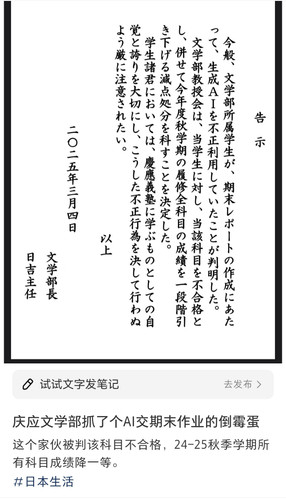 告示
今般、文学部所属学生が、期末レポートの作成にあた
って、生成AIを不正利用していたことが判明した。
文学部教授会は、当学生に対し、当該科目を不合格と
し、併せて今年度秋学期の履修全科目の成績を一段階引
き下げる減点処分を科すことを決定した。
学生諸君においては、慶應義塾に学ぶものとしての自
覚と誇りを大切にし、こうした不正行為を決して行わぬ
よう厳に注意されたい。
以上
二〇二五年三月四日
文学部長
日吉主任
试试文字发笔记
去发布 >
庆应文学部抓了个AI交期末作业的倒霉蛋
这个家伙被判该科目不合格，24-25秋季学期所
有科目成绩降一等。
#日本生活